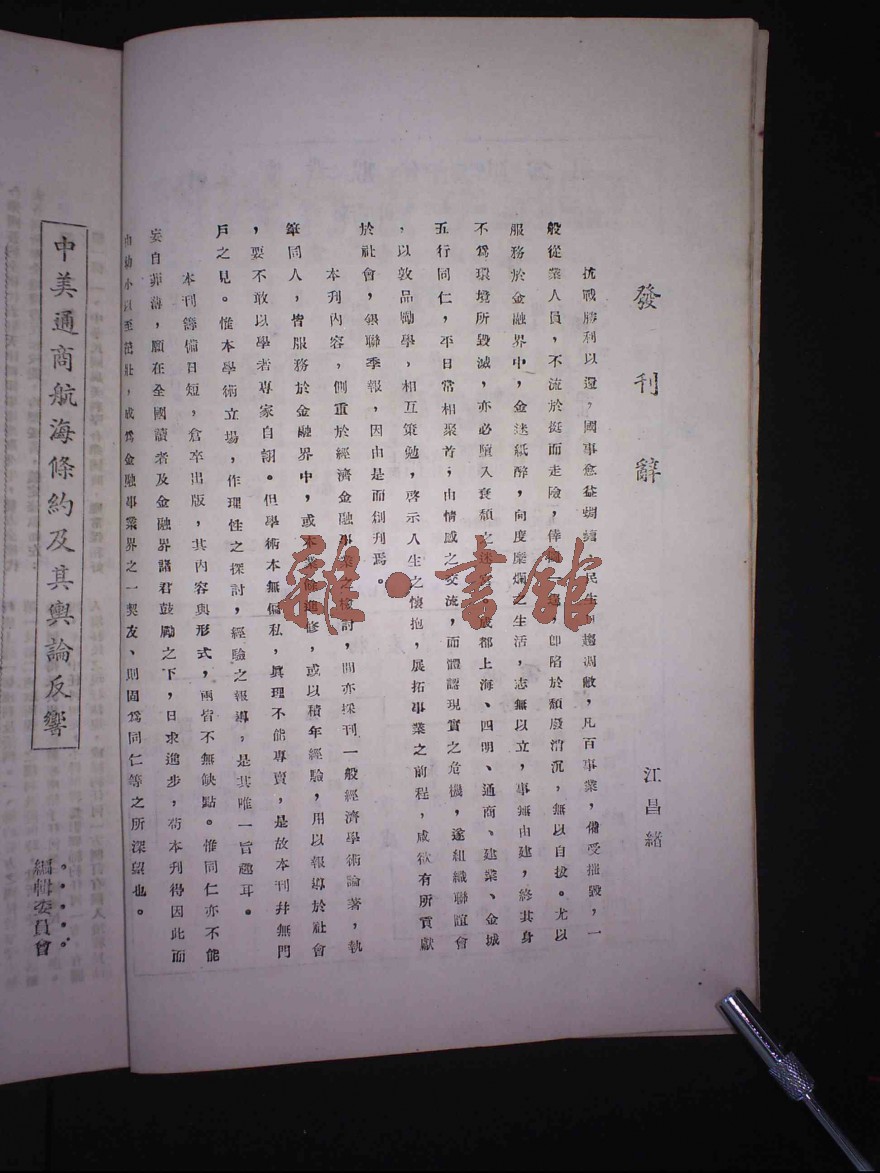 發刊辭
江昌緒
抗戰勝利以還，國事愈益蜩螗，民生日趨凋敝，凡百事業，備受摧毀，一
般從業人員，不流於挺而走險，倖圖一逞，卽陷於頹廢消沉，無以自拔。尤以
服務於金融界中，金迷紙醉，向度糜爛之生活，志無以立，事無由建，終其身
不爲環境所毀滅，亦必墮入衰頹之迷宮。成都上海、四明、通商、建業、金城
五行同仁，平日常相聚首；由情感之交流，而體認現實之危機，遂組織聯誼會
，以敦品勵學，相互策勉，啓示人生之懷抱，展拓事業之前程，咸欲有所貢獻
於社會，銀聯季報，因由是而創刊焉。
本刊內容，側重於經濟金融事業之檢討，間亦採刊一般經濟學術論著，執
筆同人，皆服務於金融界中，或本業餘進修，或以積年經驗，用以報導於社會
，要不敢以學者專家自詡。但學術本無偏私，眞理不能專賣，是故本刊幷無門
戶之見。惟本學術立場，作理性之探討，經驗之報導，是其唯一旨趣耳。
本刊籌備日短，倉卒出版，其內容與形式，兩皆不無缺點。惟同仁亦不能
妄自菲薄，願在全國讀者及金融界諸君鼓勵之下，日求進步，苟本刊得因此而
由幼小以至茁壯，成爲金融事業界之一契友、則固爲同仁等之所深望也。
中美通商航海條約及其輿論反響
編輯委員會
雜·書館